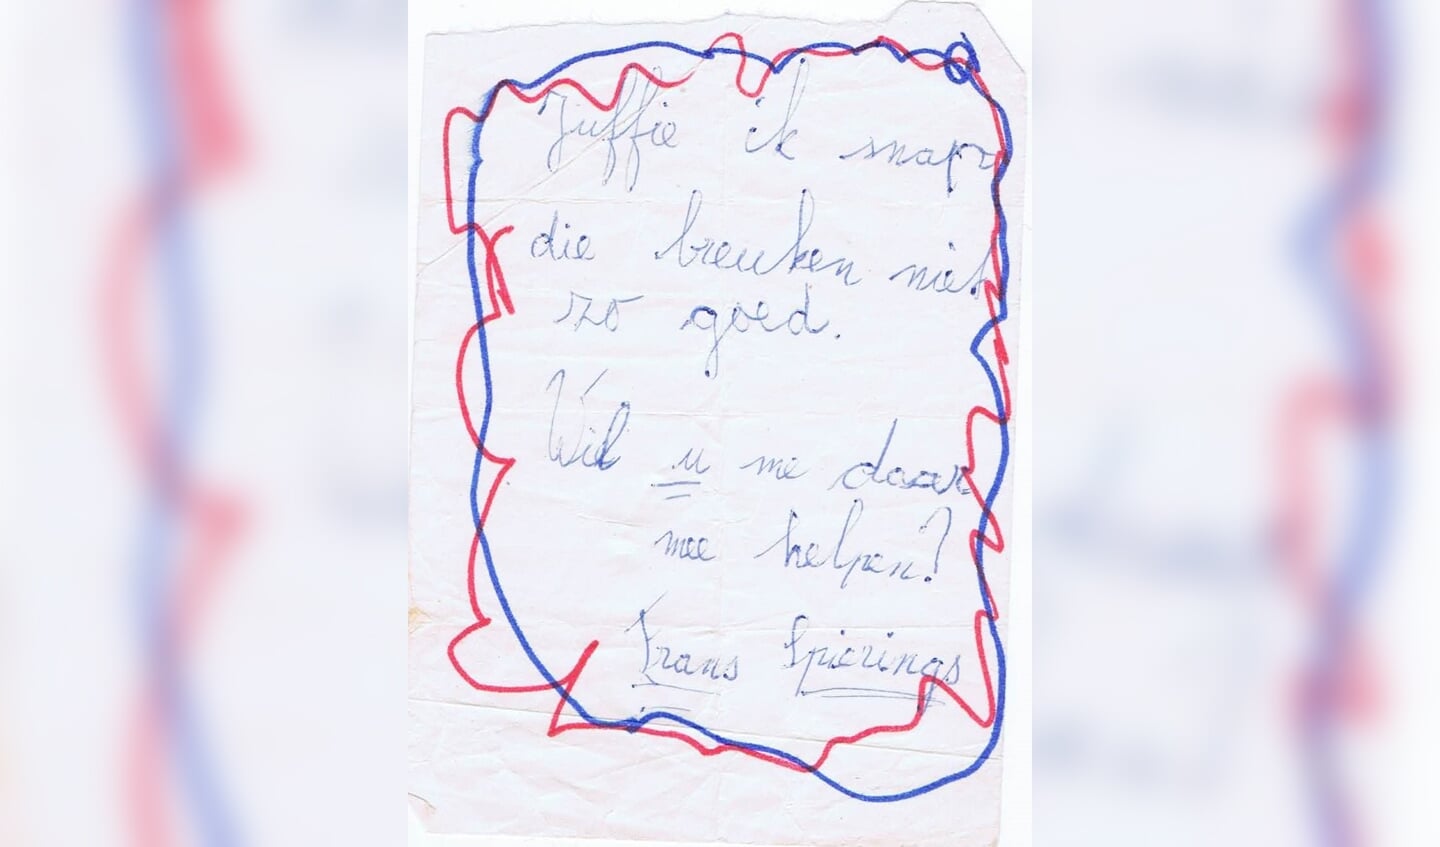 Juffie ik snap
die breuken niet
zo goed.
Wil u me daar
mee helpen?
Frans Spierings